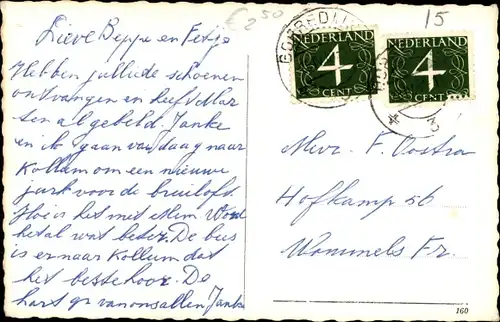 Lieve Beppe en Fetje
Hebben jullie de schoenen
ontvangen en heeft Mar
ten al gebeld. Janke
en ik gaan vandaag naar
Kollum om een nieuwe
jurk voor de bruiloft.
Hoe is het met Mem Word
het al wat beter. De bus
is er naar Kollum dat
het beste hoor. De
hart gr van ons allen Janke
€ 2 50
15
GORREDIJK
NEDERLAND
4
CENT
NEDERLAND
4
CENT
3
Mevr. F. Oostra
Hofkamp 56
Wommels Fr.
160